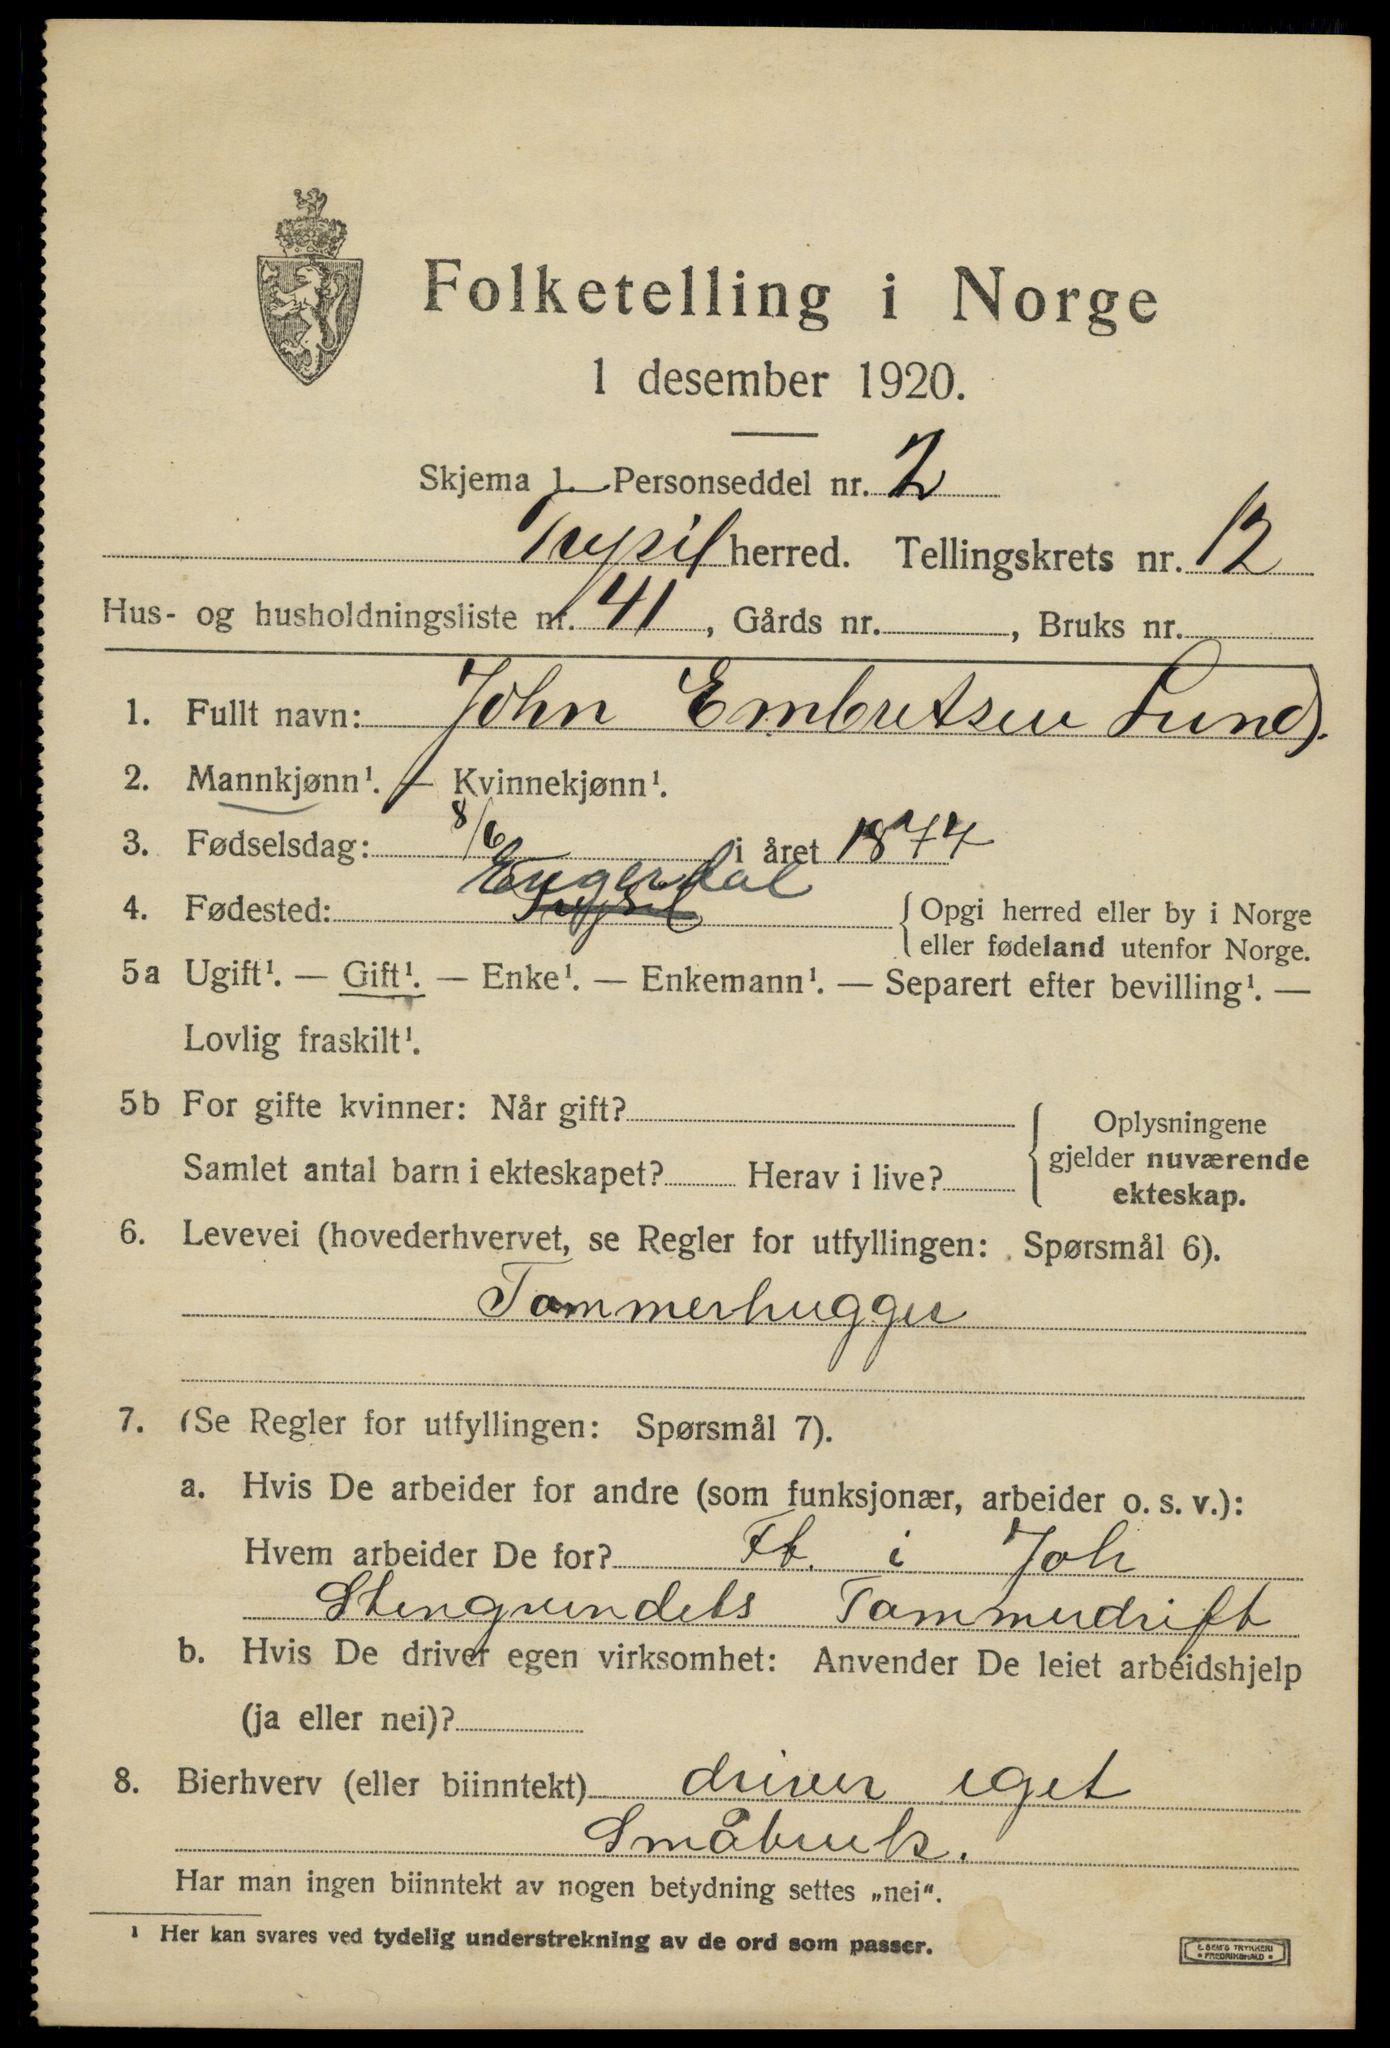 Folketelling i Norge
1 desember 1920.
Skjema 1. Personseddel nr. 2
Trysil herred. Tellingskrets nr. 12
Hus- og husholdningsliste nr. 41, Gårds nr. , Bruks nr.
1. Fullt navn: John Embretsen Lund.
2. Mannkjønn¹. — Kvinnekjønn¹.
3. Fødselsdag: 8/6 i året 1874
Engerdal
4. Fødested: Trysil {Opgi herred eller by i Norge
eller fødeland utenfor Norge.
5a Ugift¹. — Gift¹. — Enke¹. — Enkemann¹. — Separert efter bevilling¹. —
Lovlig fraskilt¹.
5b For gifte kvinner: Når gift? {Oplysningene
gjelder nuværende
ekteskap.
Samlet antal barn i ekteskapet? Herav i live?
6. Levevei (hovederhvervet, se Regler for utfyllingen: Spørsmål 6).
Tommerhugger
7. (Se Regler for utfyllingen: Spørsmål 7).
a. Hvis De arbeider for andre (som funksjonær, arbeider o. s. v.):
Hvem arbeider De for? Ft. i Joh
Stengrundets Tommerdrift
b. Hvis De driver egen virksomhet: Anvender De leiet arbeidshjelp
(ja eller nei)?
8. Bierhverv (eller biinntekt) driver eget
Småbruk.
Har man ingen biinntekt av nogen betydning settes „nei“.
¹ Her kan svares ved tydelig understrekning av de ord som passer.
E. SEM'S TRYKKERI
FREDRIKSHALD